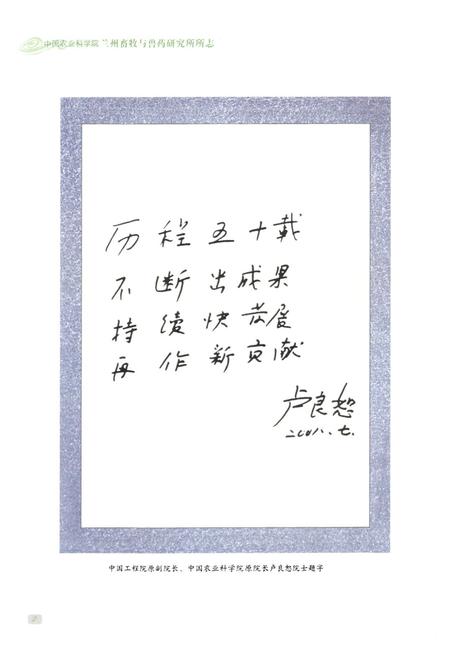 中国农业科学院 兰州畜牧与兽药研究所所志
历程五十载
不断出成果
持续快发展
再作新贡献
卢良恕
二〇〇八.七.
中国工程院原副院长、中国农业科学院原院长卢良恕院士题字